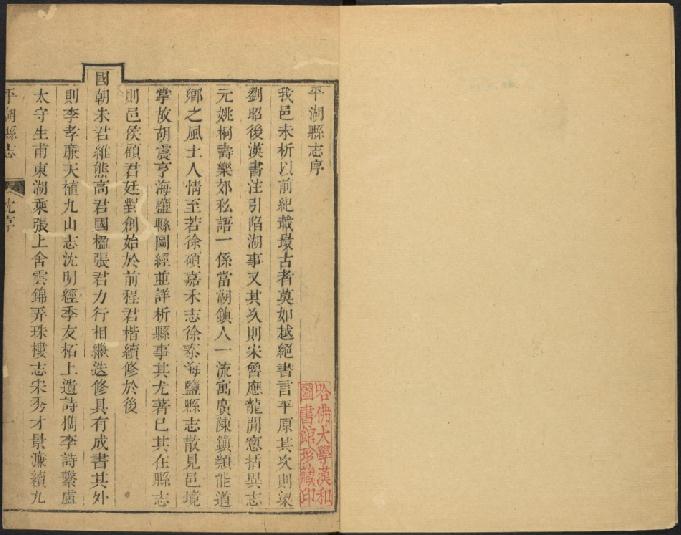 平湖縣志序
我邑未析以前紀載最古者莫如越絕書言平原其次則梁
劉昭後漢書注引陷湖事又其次則宋魯應龍閒窻括異志
元姚桐壽樂郊私語一係當湖鎮人一流寓廣陳鎮類能道
鄉之風土人情至若徐碩嘉禾志徐泰海鹽縣志散見邑境
掌故胡震亨海鹽縣圖經並詳析縣事其尤著已其在縣志
則邑侯顧君廷對創始於前程君楷續修於後
國朝朱君維熊高君國楹張君力行相繼迭修具有成書其外
則李孝廉天植九山志沈明經季友柘上遺詩檇李詩繫盧
太守生甫東湖乘張上舍雲錦弄珠樓志宋秀才景濂續九
平湖縣志
沈序
哈佛大學漢和
圖書館珍藏印